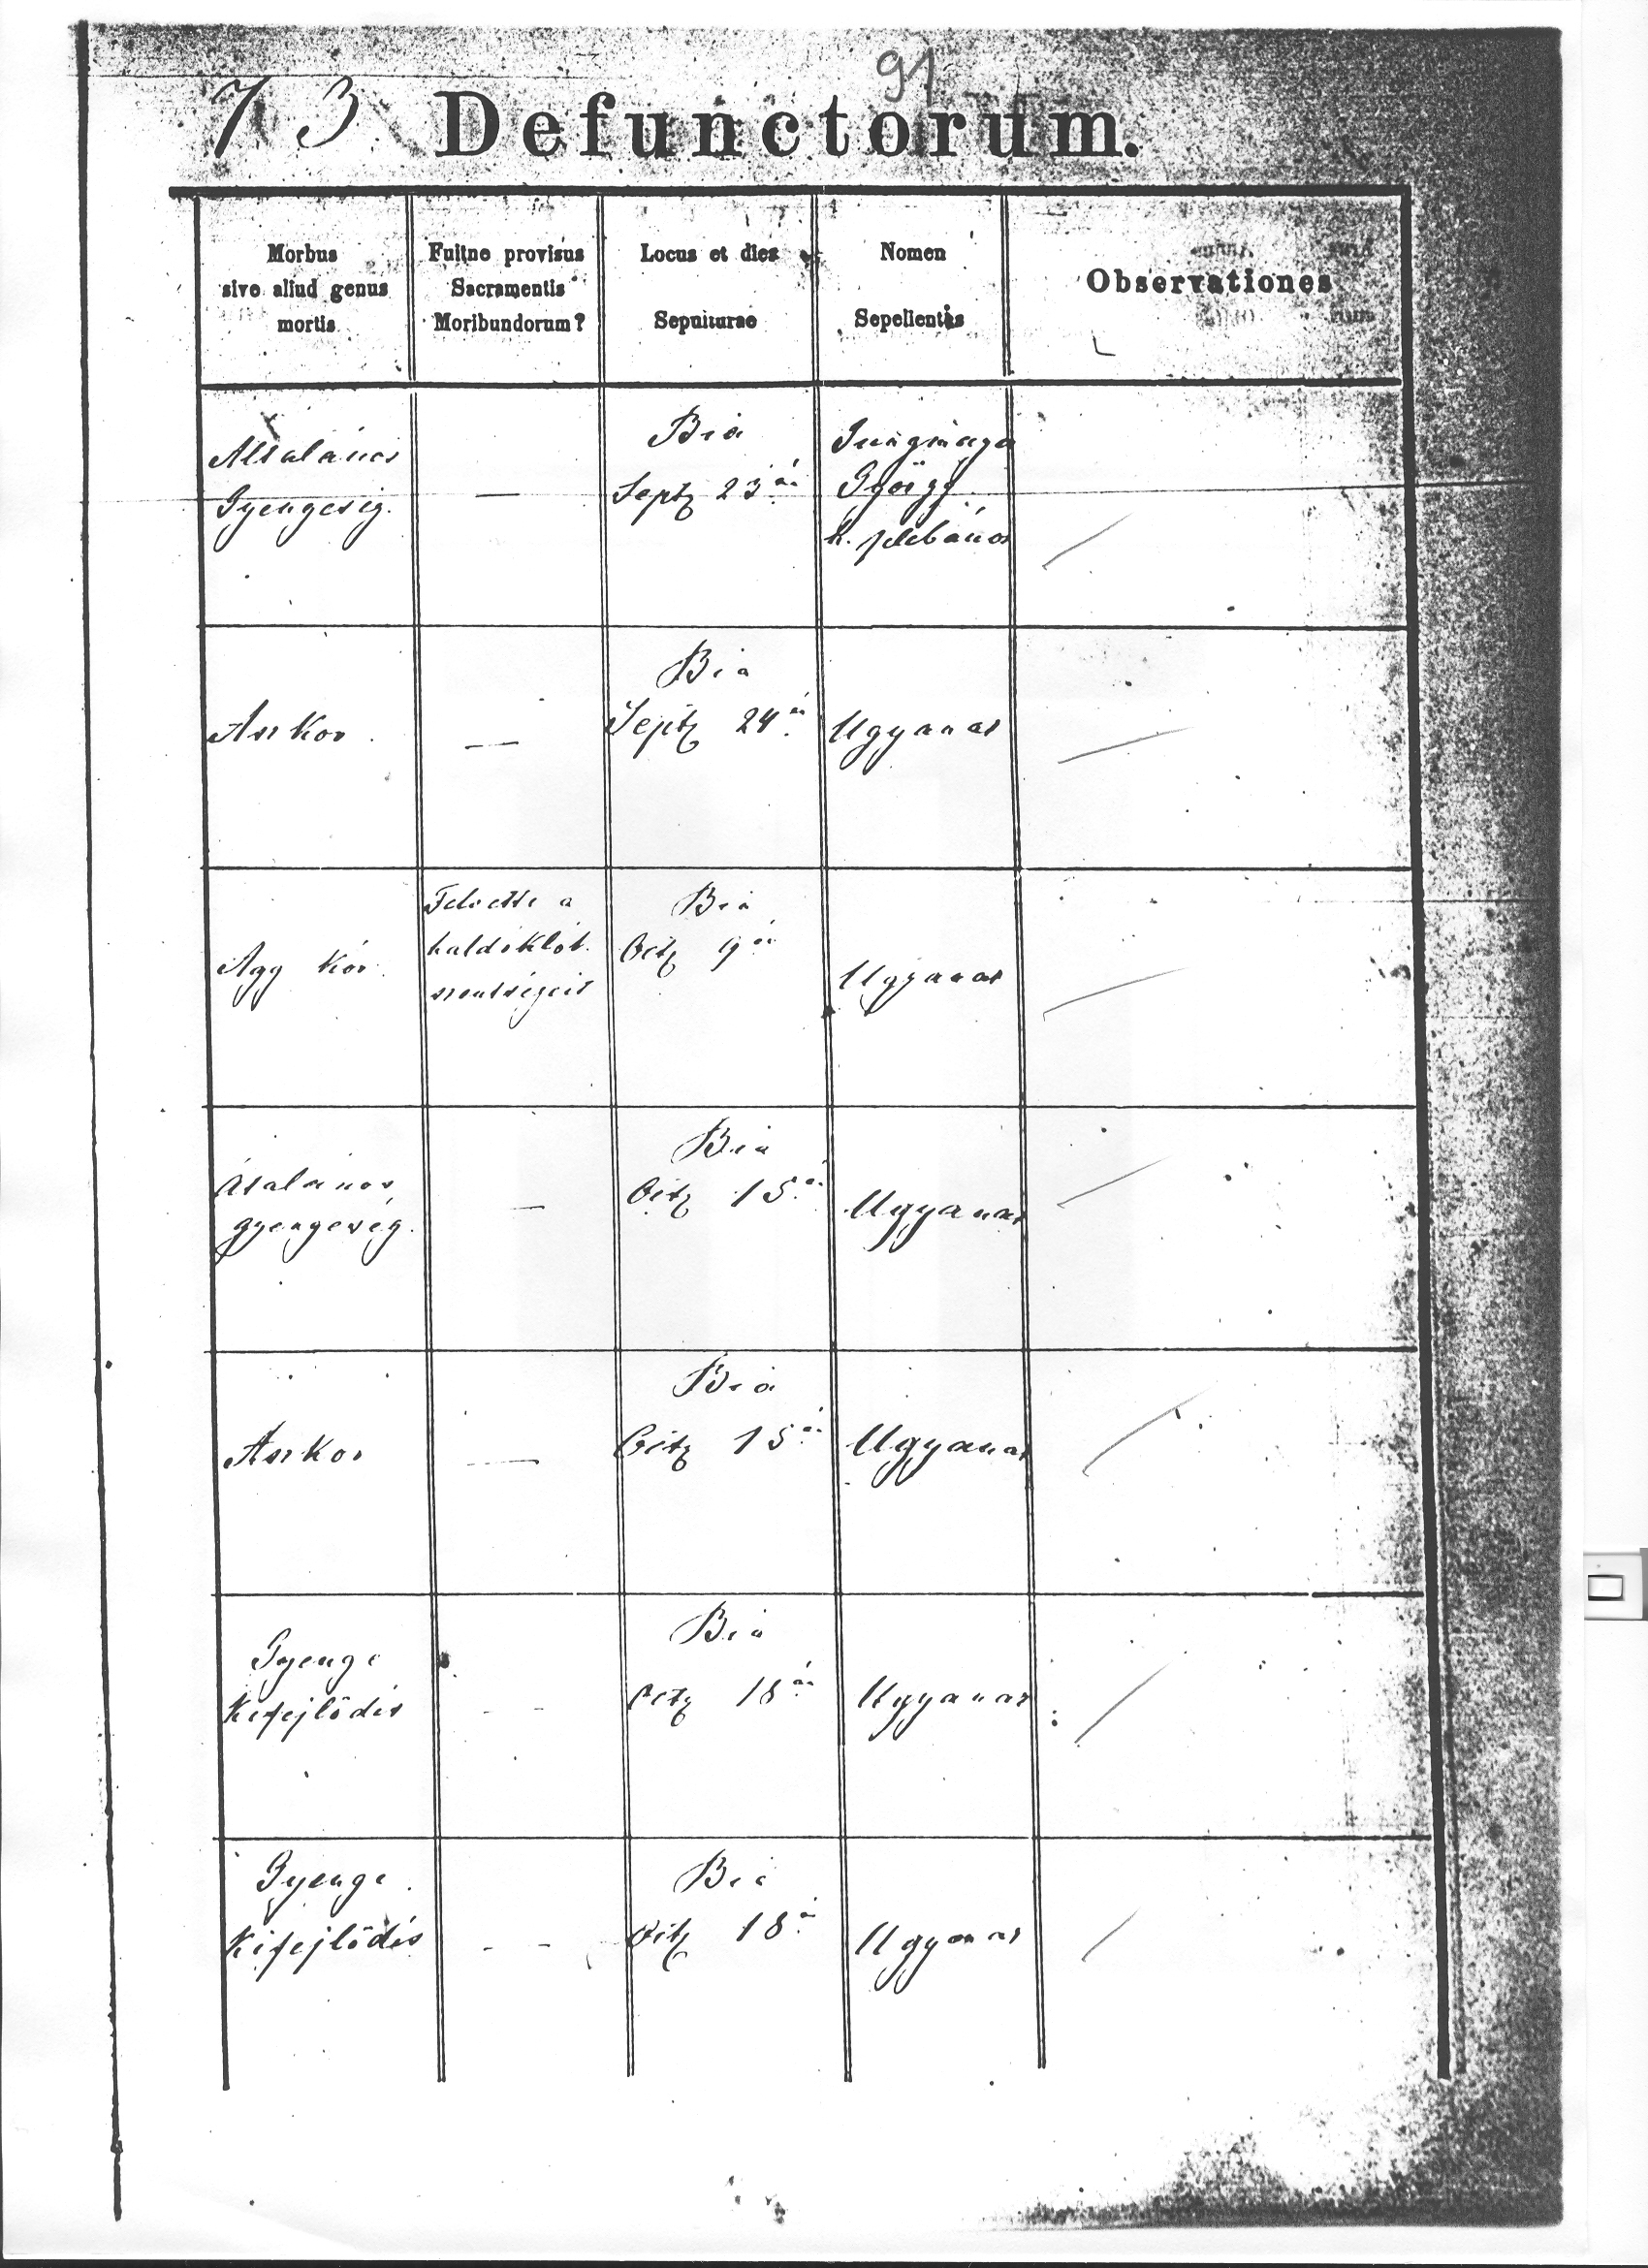 91
73 Defunctorum.
Morbus
sive aliud genus
mortis
Fuitne provisus
Sacramentis
Moribundorum?
Locus et dies
Sepulturae
Nomen
Sepelientis
Observationes
Általános
Gyengeség.
—
Bia
Sept 23án
György
h. plébános
Aszkor.
—
Bia
Sept 24én
Ugyanaz
Agg kór.
Felvette a
haldoklók
szentségeit
Bia
Oct 9én
Ugyanaz
Átalános
gyengeség.
—
Bia
Oct 15én
Ugyanaz
Aszkor
—
Bia
Oct 15én
Ugyanaz
Gyenge
Kifejlődés
- -
Bia
Oct 18án
Ugyanaz
Gyenge
Kifejlődés
- -
Bia
Oct 18án
Ugyanaz